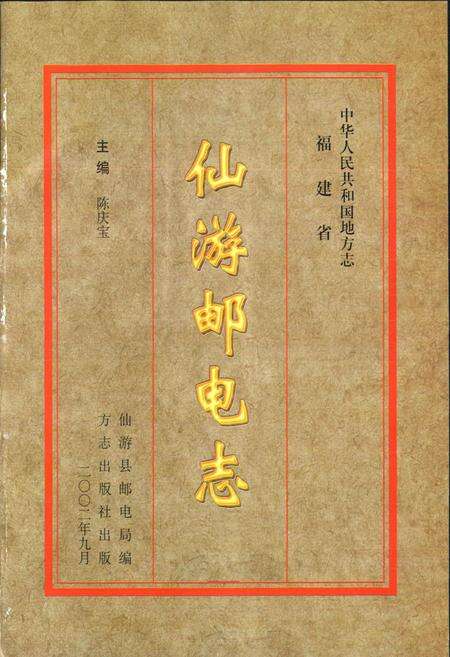 中华人民共和国地方志
福建省
仙游邮电志
主编 陈庆宝
仙游县邮电局编
方志出版社出版
二〇〇二年九月